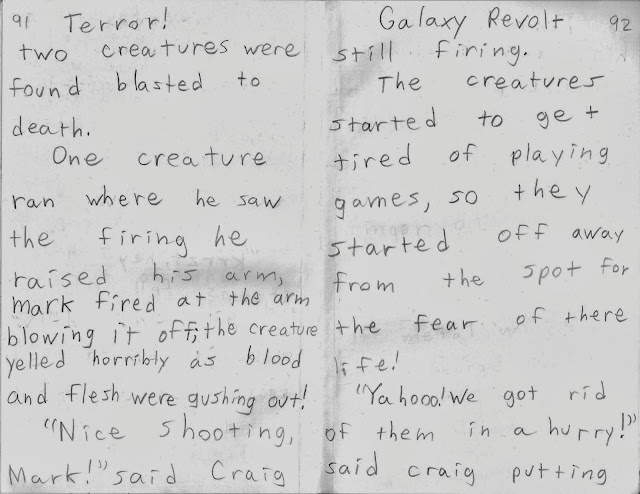 91 Terror!
two creatures were
found blasted to
death.
One creature
ran where he saw
the firing he
raised his arm,
mark fired at the arm
blowing it off; the creature
yelled horribly as blood
and flesh were gushing out!
"Nice shooting,
Mark!" said Craig
Galaxy Revolt 92
still firing.
The creatures
started to get
tired of playing
games, so they
started off away
from the spot for
the fear of there
life!
"Yahooo! We got rid
of them in a hurry!"
said craig putting